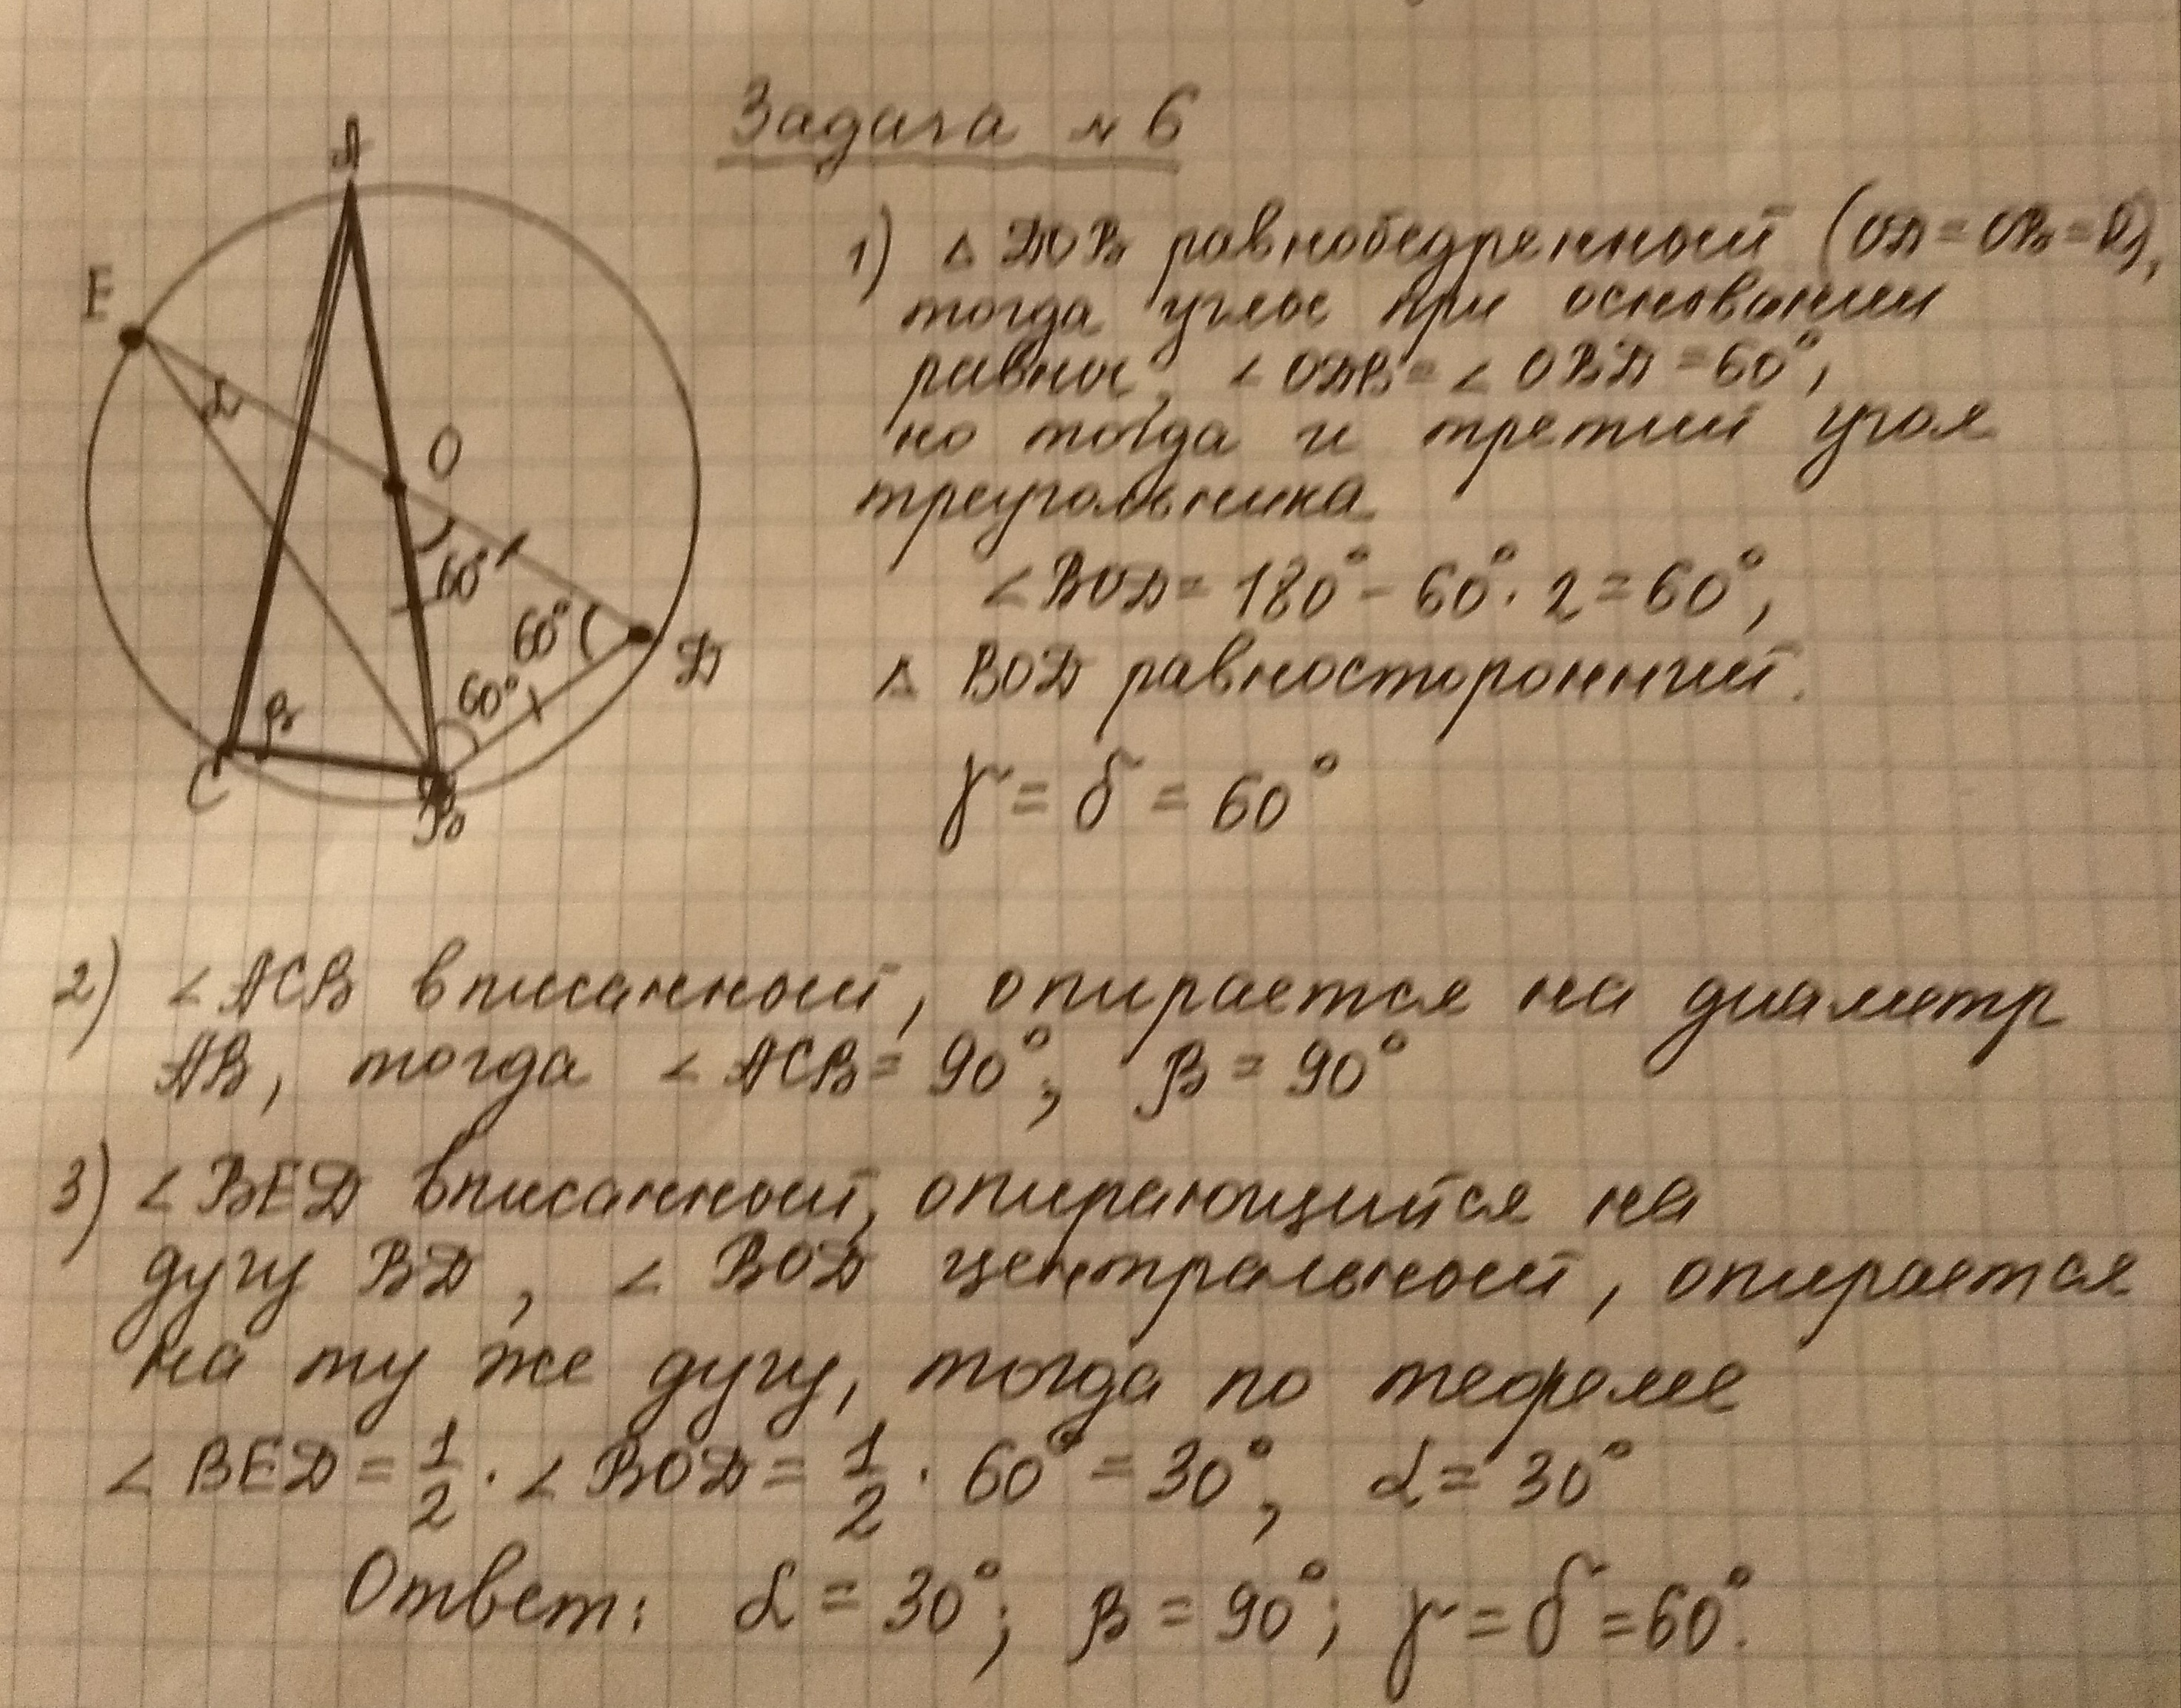 Задача N 6
A
E
α
O
60°
60°
60°
D
β
C
B
1) Δ DOB равнобедренный (OD=OB=R),
тогда углы при основании
равны, ∠ODB=∠OBD=60°,
но тогда и третий угол
треугольника
∠BOD=180°-60°·2=60°,
Δ BOD равносторонний.
γ=δ=60°
2) ∠ACB вписанный, опирается на диаметр
AB, тогда ∠ACB=90°; β=90°
3) ∠BED вписанный, опирающийся на
дугу BD, ∠BOD центральный, опирается
на ту же дугу, тогда по теореме
∠BED=1/2·∠BOD=1/2·60°=30°, α=30°
Ответ: α=30°; β=90°; γ=δ=60°.